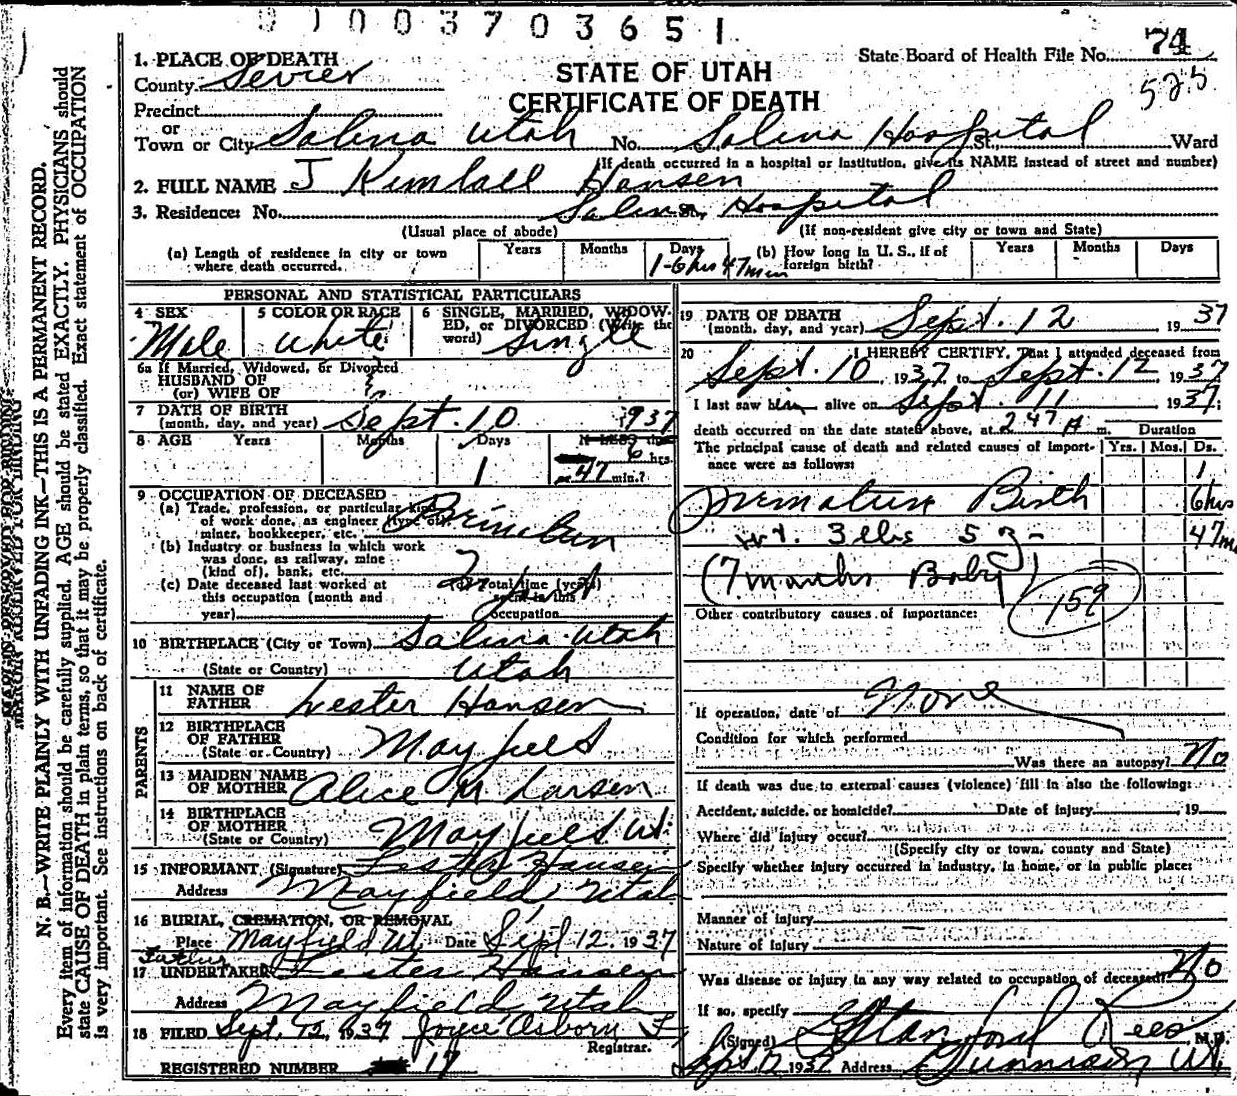 01003703651
1. PLACE OF DEATH
State Board of Health File No. 74
County Sevier
STATE OF UTAH
525
CERTIFICATE OF DEATH
Precinct
or
Town or City Salina Utah No. Salina Hospital St., Ward
(If death occurred in a hospital or institution, give its NAME instead of street and number)
2. FULL NAME J Kimball Hansen
3. Residence: No. Salina St., Hospital
(Usual place of abode) (If non-resident give city or town and State)
(a) Length of residence in city or town where death occurred. Years Months Days 1-6hrs 47min
(b) How long in U. S., if of foreign birth? Years Months Days
PERSONAL AND STATISTICAL PARTICULARS
4 SEX Male
5 COLOR OR RACE White
6 SINGLE, MARRIED, WIDOWED, or DIVORCED (Write the word) Single
6a If Married, Widowed, or Divorced
HUSBAND OF
(or) WIFE OF
7 DATE OF BIRTH
(month, day, and year) Sept. 10 1937
8 AGE Years Months Days 1
6 hrs.
47 min.?
9 OCCUPATION OF DECEASED
(a) Trade, profession, or particular kind
of work done, as engineer (type of),
miner, bookkeeper, etc.
(b) Industry or business in which work
was done, as railway, mine
(kind of), bank, etc.
(c) Date deceased last worked at
this occupation (month and
year)
Total time (years)
spent in this
occupation
10 BIRTHPLACE (City or Town) Salina Utah
(State or Country) Utah
PARENTS
11 NAME OF
FATHER Lester Hansen
12 BIRTHPLACE
OF FATHER
(State or Country) Mayfield
13 MAIDEN NAME
OF MOTHER Alice M Larsen
14 BIRTHPLACE
OF MOTHER
(State or Country) Mayfield Ut.
15 INFORMANT (Signature) Lester Hansen
Address Mayfield, Utah
16 BURIAL, CREMATION, OR REMOVAL
Place Mayfield Ut. Date Sept 12, 1937
Father
17 UNDERTAKER Lester Hansen
Address Mayfield, Utah
18 FILED Sept. 12, 1937 Joyce Osborn
Registrar.
REGISTERED NUMBER 17
19 DATE OF DEATH
(month, day, and year) Sept. 12 1937
20 I HEREBY CERTIFY, That I attended deceased from
Sept. 10, 1937 to Sept. 12, 1937
I last saw him alive on Sept. 11 1937;
death occurred on the date stated above, at 2 47 A m. Duration
The principal cause of death and related causes of importance were as follows: Yrs. Mos. Ds.
Premature Birth 1 6hrs
wt. 3 lbs 5 oz 47m
(7 months Baby)
159
Other contributory causes of importance:
If operation, date of None
Condition for which performed
Was there an autopsy? No
If death was due to external causes (violence) fill in also the following:
Accident, suicide, or homicide? Date of injury , 19
Where did injury occur?
(Specify city or town, county and State)
Specify whether injury occurred in industry, in home, or in public place:
Manner of injury
Nature of injury
Was disease or injury in any way related to occupation of deceased? No
If so, specify
(Signed) Stanford Rees M.D.
Sept 12, 1937 Address Gunnison Ut.
N. B.—WRITE PLAINLY WITH UNFADING INK—THIS IS A PERMANENT RECORD.
Every item of information should be carefully supplied. AGE should be stated EXACTLY. PHYSICIANS should
state CAUSE OF DEATH in plain terms, so that it may be properly classified. Exact statement of OCCUPATION
is very important. See instructions on back of certificate.
MARGIN RESERVED FOR BINDING